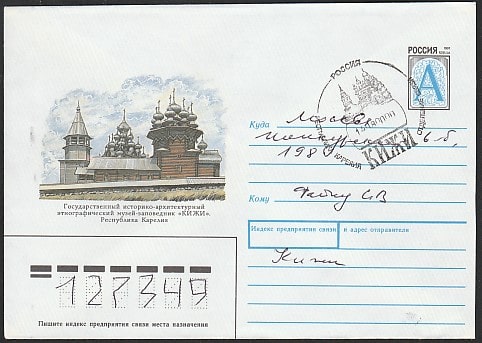 РОССИЯ
А
РОССИЯ
КАРЕЛИЯ
КИЖИ
Куда Москва
198
Кому
Государственный историко-архитектурный
этнографический музей-заповедник «КИЖИ».
Республика Карелия
Индекс предприятия связи и адрес отправителя
Кижи
127349
Пишите индекс предприятия связи места назначения